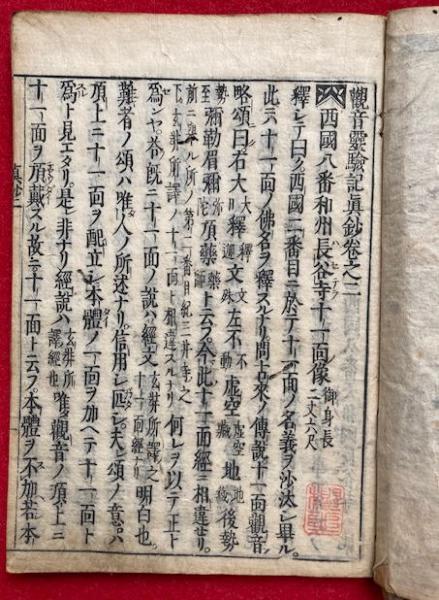 觀音靈驗記眞鈔卷之二
西國八番和州長谷寺十一面像 御身長二丈六尺
釋シテ曰ク西國二番目ニ於テ十一面ノ名義ヲ沙汰シ畢ル
此ニ十一面ノ佛名ヲ釋スルナリ問古來ノ傳說十一面觀音
略頌曰右大釋文左不虛空地後勢
至彌勒眉彌頂藥上ト云フ今此十一面經ニ相違セリ
前ニ擧ル所ノ第二番目紀三井寺之下玄弉所譯ノ十一面ト相違スルナリ何レヲ以テ正ト
爲シヤ答既ニ十一面ノ說ハ經文玄弉所譯之明白也
難者ノ頌ハ唯人ノ所述ナリ信用シ叵シ夫レ頌ノ意ハ
頂上ニ十一面ヲ配立シ本體ノ一面ヲ加ヘテ十一面ト
爲ト見エタリ是レ非ナリ經說ハ玄弉所譯經也唯觀音ノ頂上ニ
十一面ヲ頂戴スル故ニ十一面ト云フ本體ヲ不加若本
眞鈔二